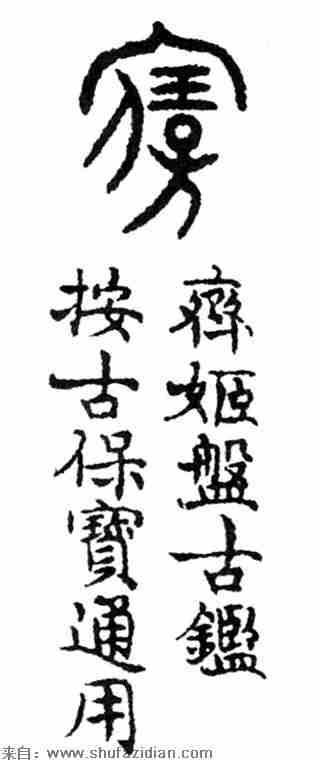 姬盤古鑑
按古保寶通用
来自：www.shufazidian.com